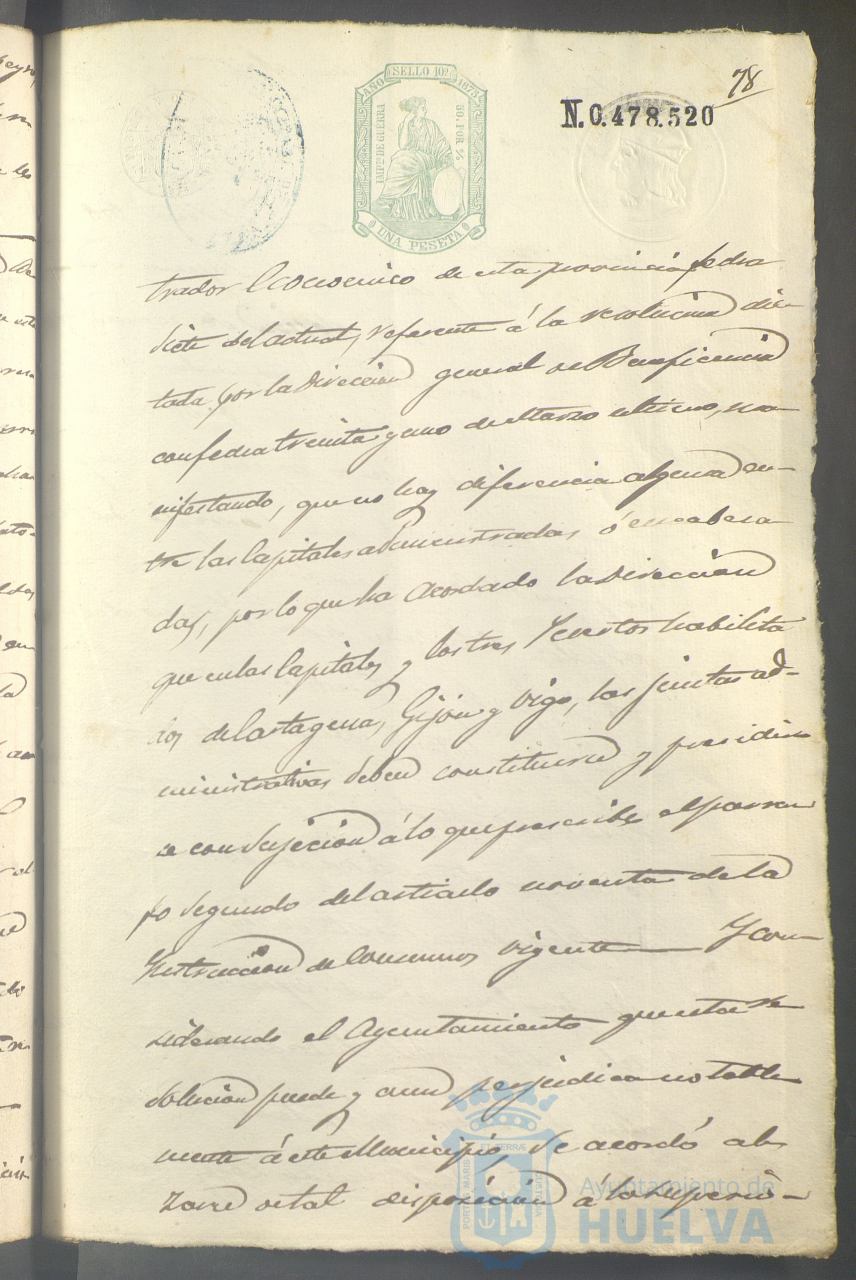 78
AÑO SELLO 10º 1873
IMPº DE GUERRA
50 POR %
UNA PESETA
N. 0.478.520
trador Economico de esta provincia fecha
siete del actual, referente á la resolucion dic-
tada por la Direccion general de Beneficencia
con fecha treinta y uno de Marzo ultimo, ma-
nifestando, que no hay diferencia alguna en-
tre las Capitales administradas ó encabeza
das, por lo que ha acordado la Direccion
que en las Capitales y los tres Puertos habilita
dos de Cartagena, Gijón y Vigo, las juntas ad-
ministrativas deben constituirse y presidir
se con sujecion á lo que prescribe el parra
fo segundo del articulo noventa de la
Instruccion de Consumos vigente — Y con-
siderando el Ayuntamiento que esta re
solucion puede y aun perjudica notable
mente á este Municipio, se acordó al
zarse de tal disposicion á la superio-
PORTUS MARIS ET TERRÆ CUSTODIA
Ayuntamiento de
HUELVA